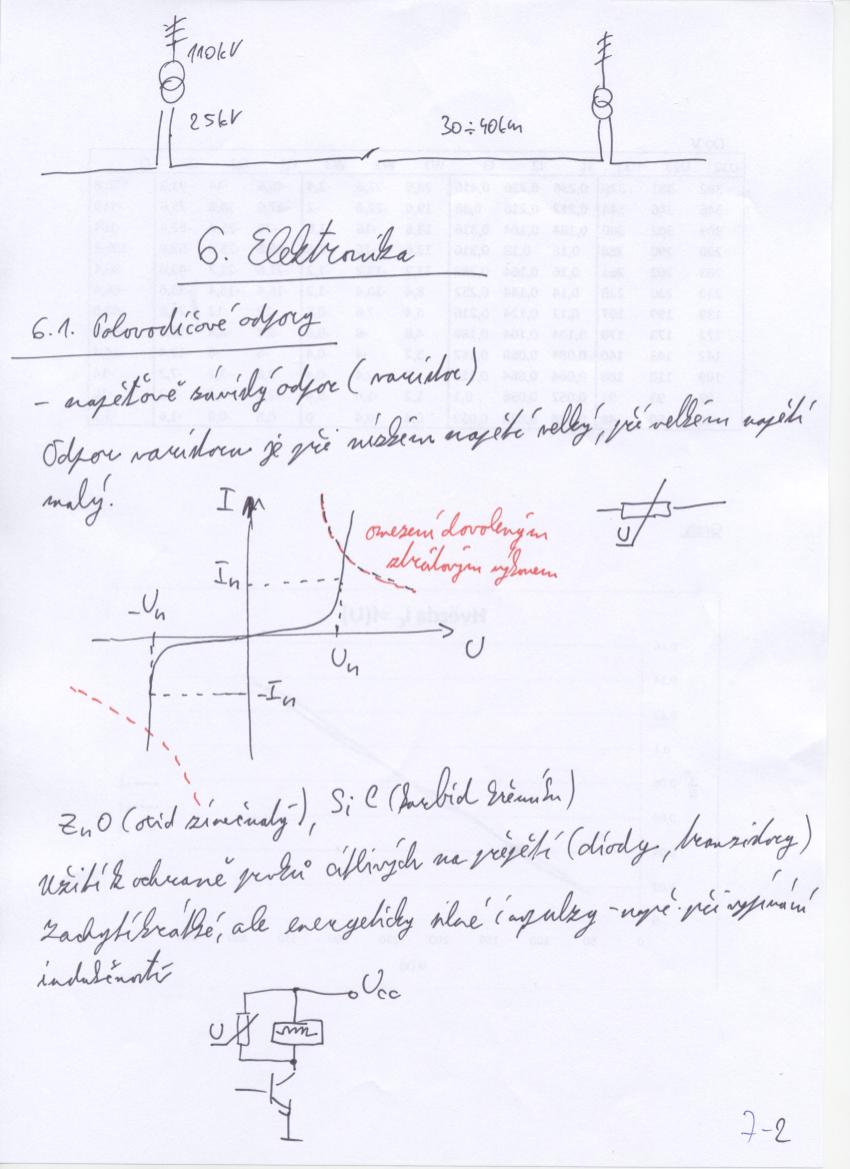 110kV
25kV
30÷40km
6. Elektronika
6.1. Polovodičové odpory
- napěťově závislý odpor (varistor)
Odpor varistoru je při nízkém napětí velký, při velkém napětí
malý.
I
omezení dovoleným
ztrátovým výkonem
U
In
-Un
U
Un
-In
ZnO (oxid zinečnatý), SiC (karbid křemíku)
Užití k ochraně prvků citlivých na přepětí (diody, tranzistory)
Zachytí krátké, ale energeticky silné impulzy - např. při vypínání
indukčností
Ucc
U
7-2